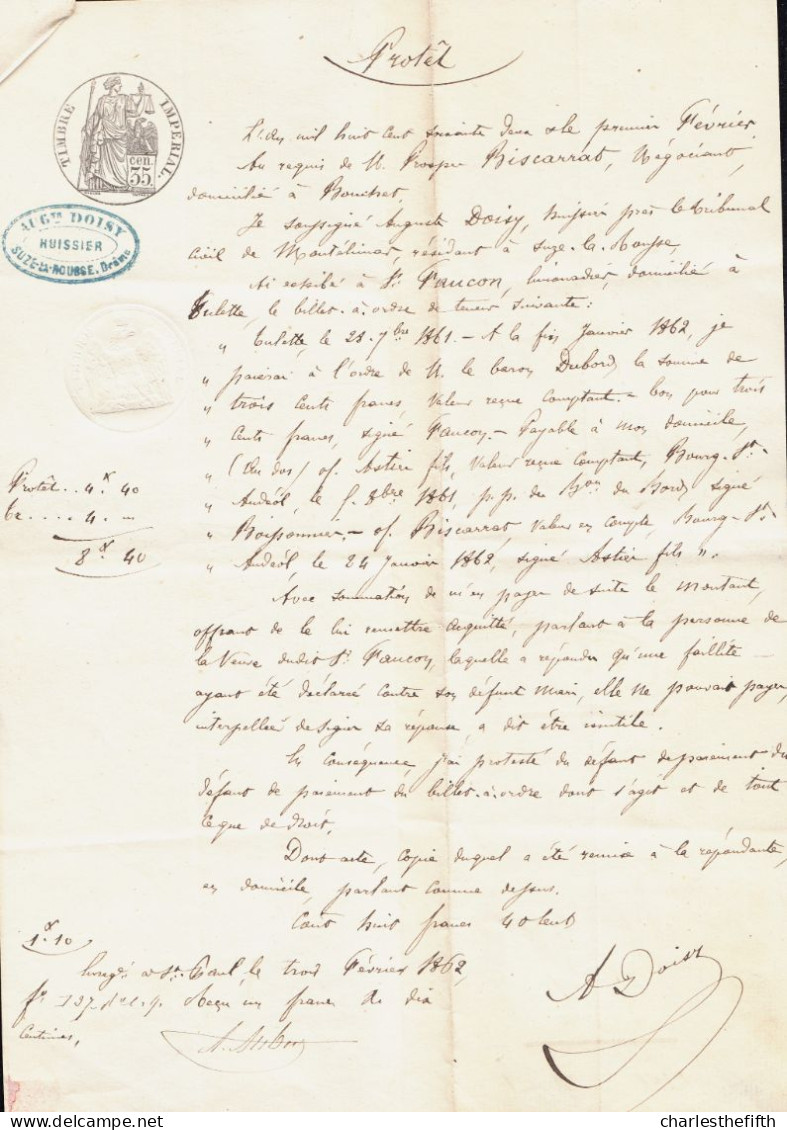 Protêt
TIMBRE IMPERIAL.
cen.
55
AUG.TE DOISY
HUISSIER
SUZE-LA-ROUSSE. Drôme
L'an mil huit cent soixante deux & le premier Février,
Au requis de M. Prosper Biscarrat, Négociant,
domicilié à Bouchet,
Je soussigné Auguste Doisy, huissier près le tribunal
civil de Montélimar, résidant à Suze-la-Rousse,
Ai exhibé à Sr. Faucon, limonadier, domicilié à
Tulette, le billet-à-ordre de teneur suivante :
" Tulette, le 28. 7bre 1861. - A la fin Janvier 1862, je
" paierai à l'ordre de M. le baron Dubord la somme de
" trois cents francs, valeur reçue comptant. - bon pour trois
" cents francs, signé Faucon. - Payable à mon domicile,
" (Au dos) Astier fils, valeur reçue comptant, Bourg-St-
" Andéol, le 8bre 1861, p.p. du Bon du Bord, signé
" Boissonnier. - Biscarrat, valeur en compte, Bourg-St-
" Andéol, le 24 Janvier 1862, signé Astier fils ".
Protêt .. 4f 40
.... 4. "
8f 40
Avec sommation de m'en payer de suite le montant,
offrant de le lui remettre acquitté, parlant à la personne de
la Veuve dudit Sr. Faucon, laquelle a répondu qu'une faillite
ayant été déclarée contre son défunt mari, elle ne pouvait payer,
interpellée de signer sa réponse, a dit être inutile.
En conséquence, j'ai protesté du défaut de paiement du
défaut de paiement du billet-à-ordre dont s'agit et de tout
ce que de droit.
Dont acte, copie duquel a été remise à la répondante,
en domicile, parlant comme dessus.
Cout huit francs 40 cent
1f. 10
A Doisy
St. Paul, le trois Février 1862,
Reçu un franc dix
centimes,
charlesthefifth